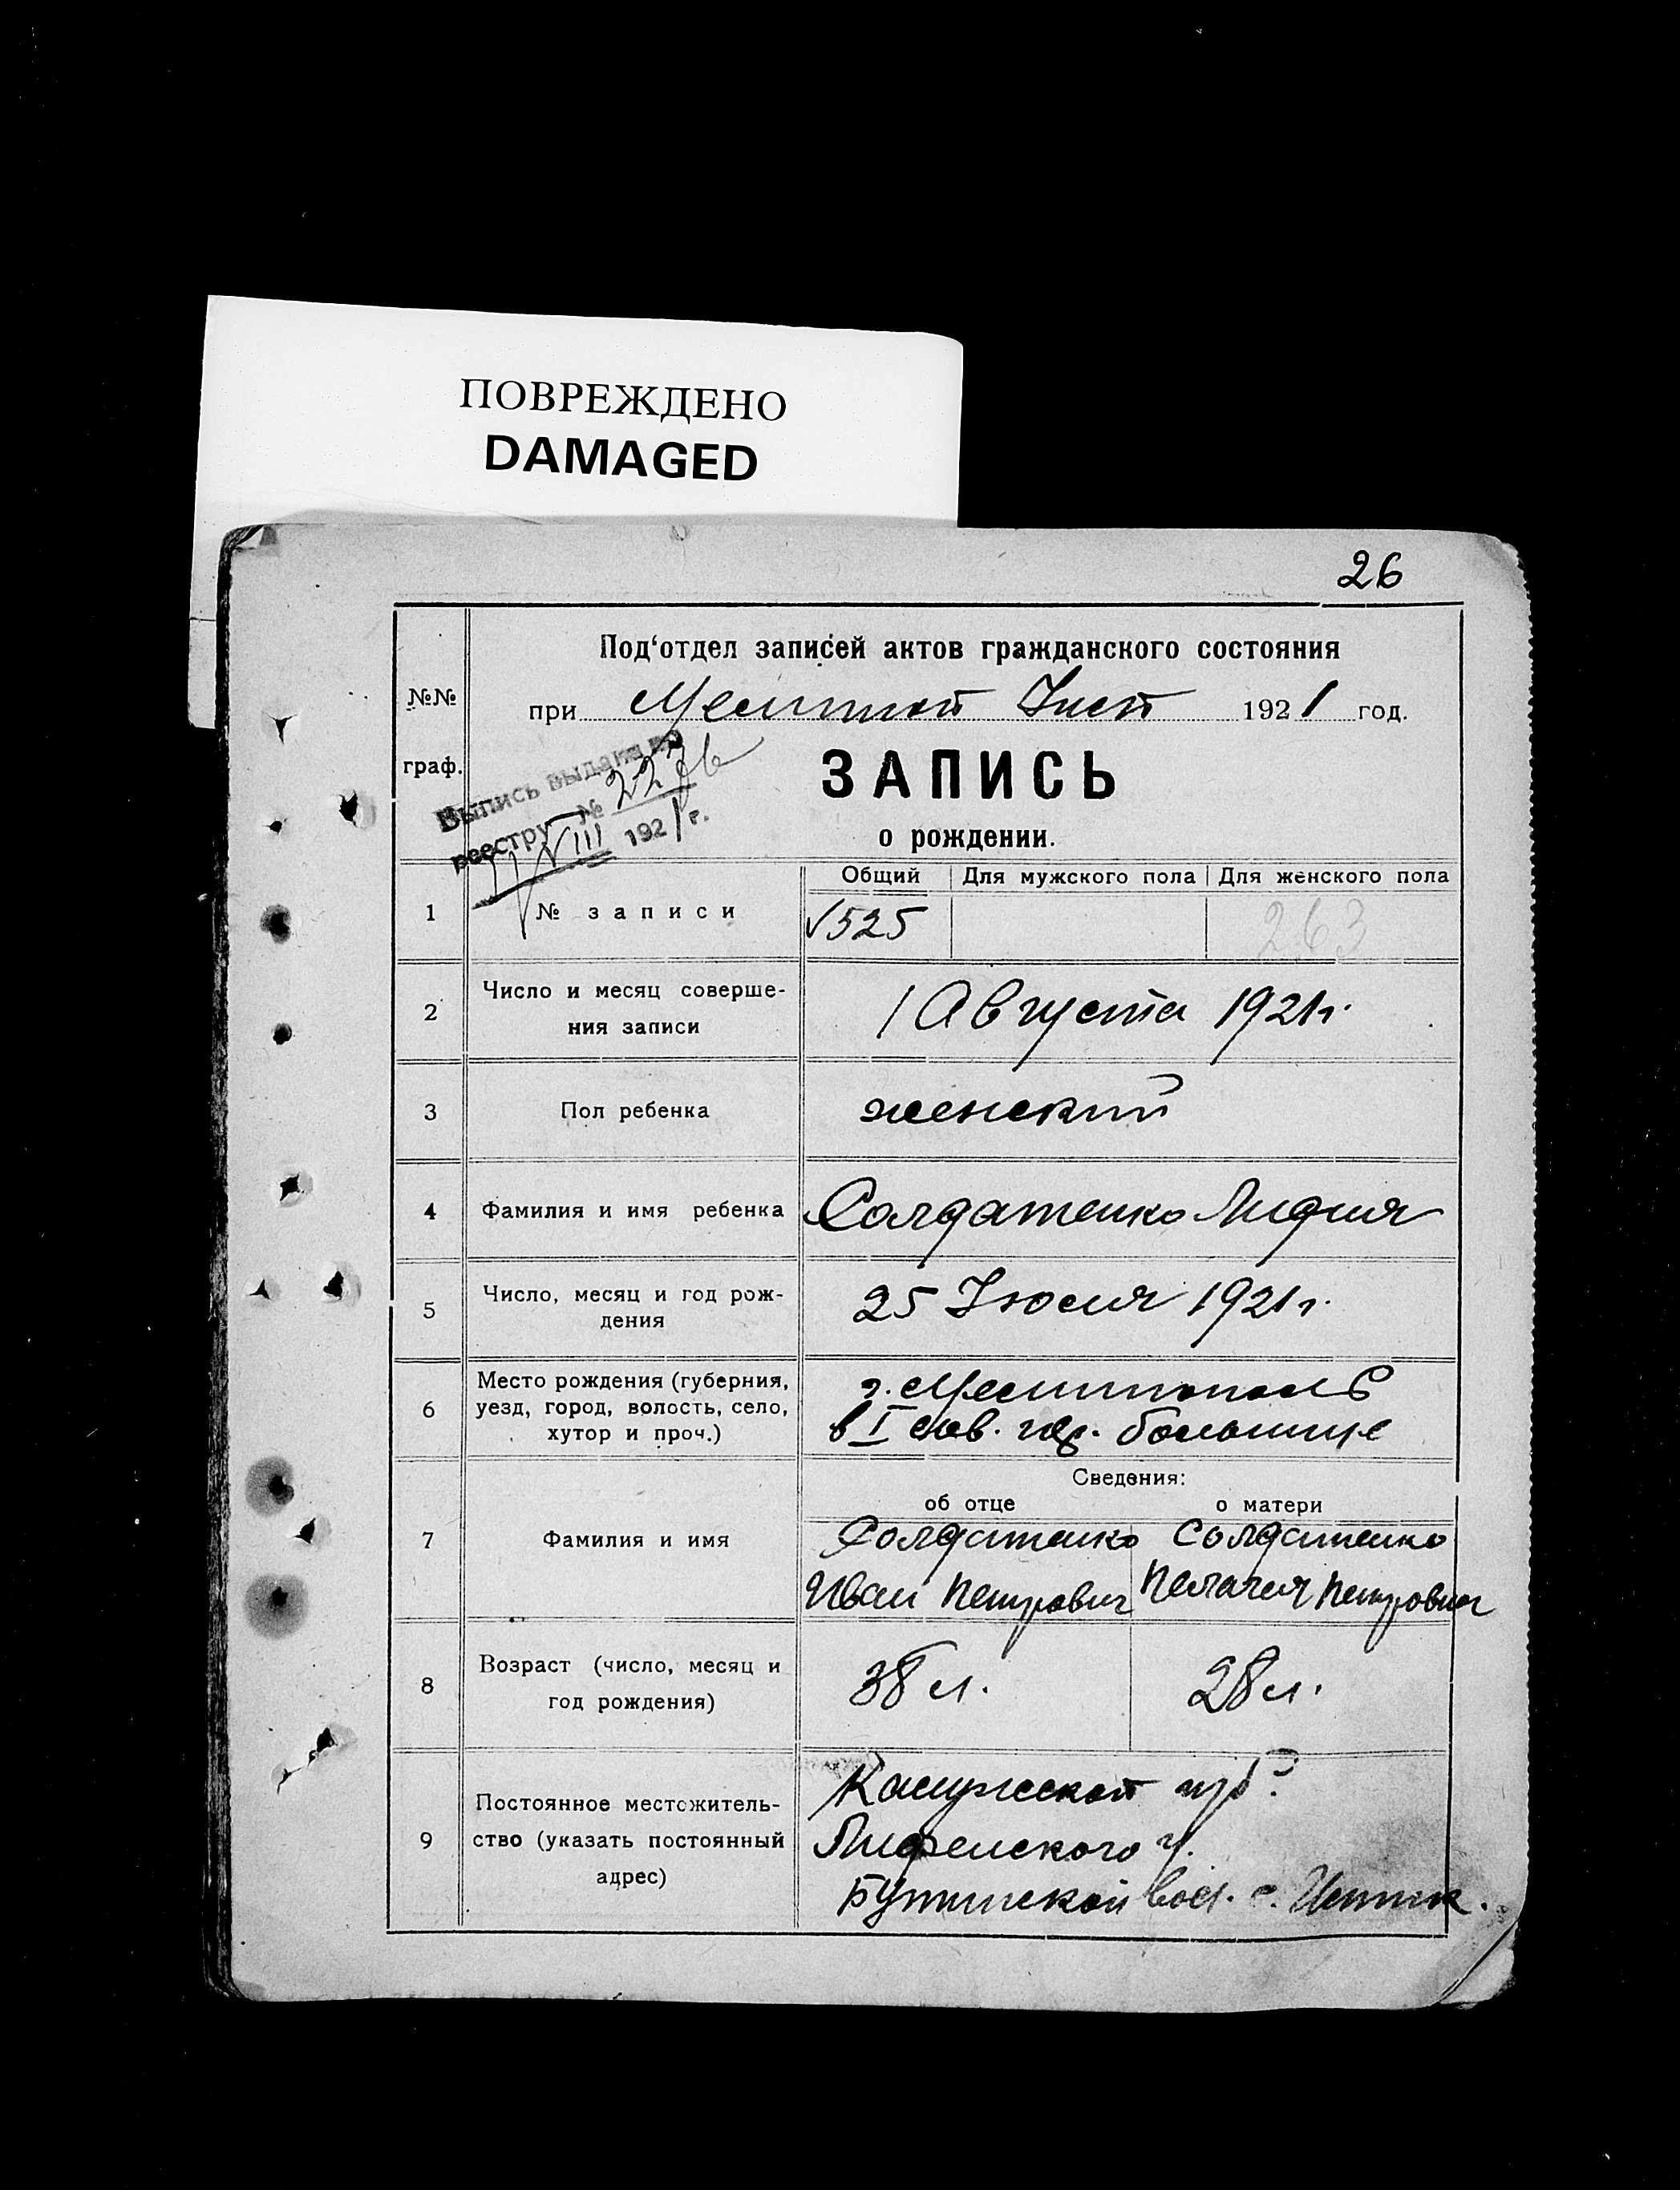 ПОВРЕЖДЕНО
DAMAGED
26
Под‘отдел записей актов гражданского состояния
№№
граф.
при 1921 год.
Выпись выдана по
реестру № 2276
VIII 1921 г.
ЗАПИСЬ
о рождении.
Общий Для мужского пола Для женского пола
1 № записи √525 263
2 Число и месяц соверше-
ния записи
1 Августа 1921г.
3 Пол ребенка женский
4 Фамилия и имя ребенка Солдатенко Лидия
5 Число, месяц и год рож-
дения
25 Июля 1921г.
6 Место рождения (губерния,
уезд, город, волость, село,
хутор и проч.)
г. Мелитополь
в I сов. больнице
Сведения:
об отце о матери
7 Фамилия и имя
Солдатенко Солдатенко
Иван Петрович Пелагия Петровна
8 Возраст (число, месяц и
год рождения)
38 л. 28 л.
9 Постоянное местожитель-
ство (указать постоянный
адрес)
Калужской губ.
у.
вол. с.